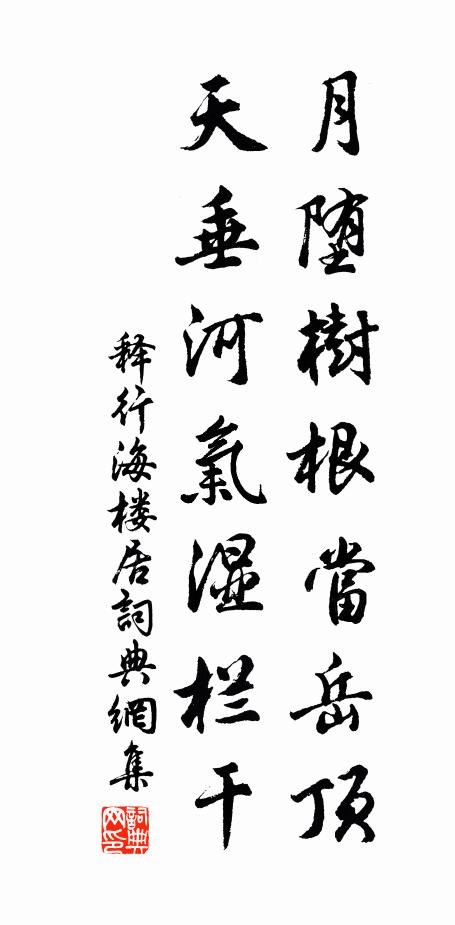 月堕樹根當岳頂
天垂河氣濕栏干
释行海楼居詞典網集
詞典网印